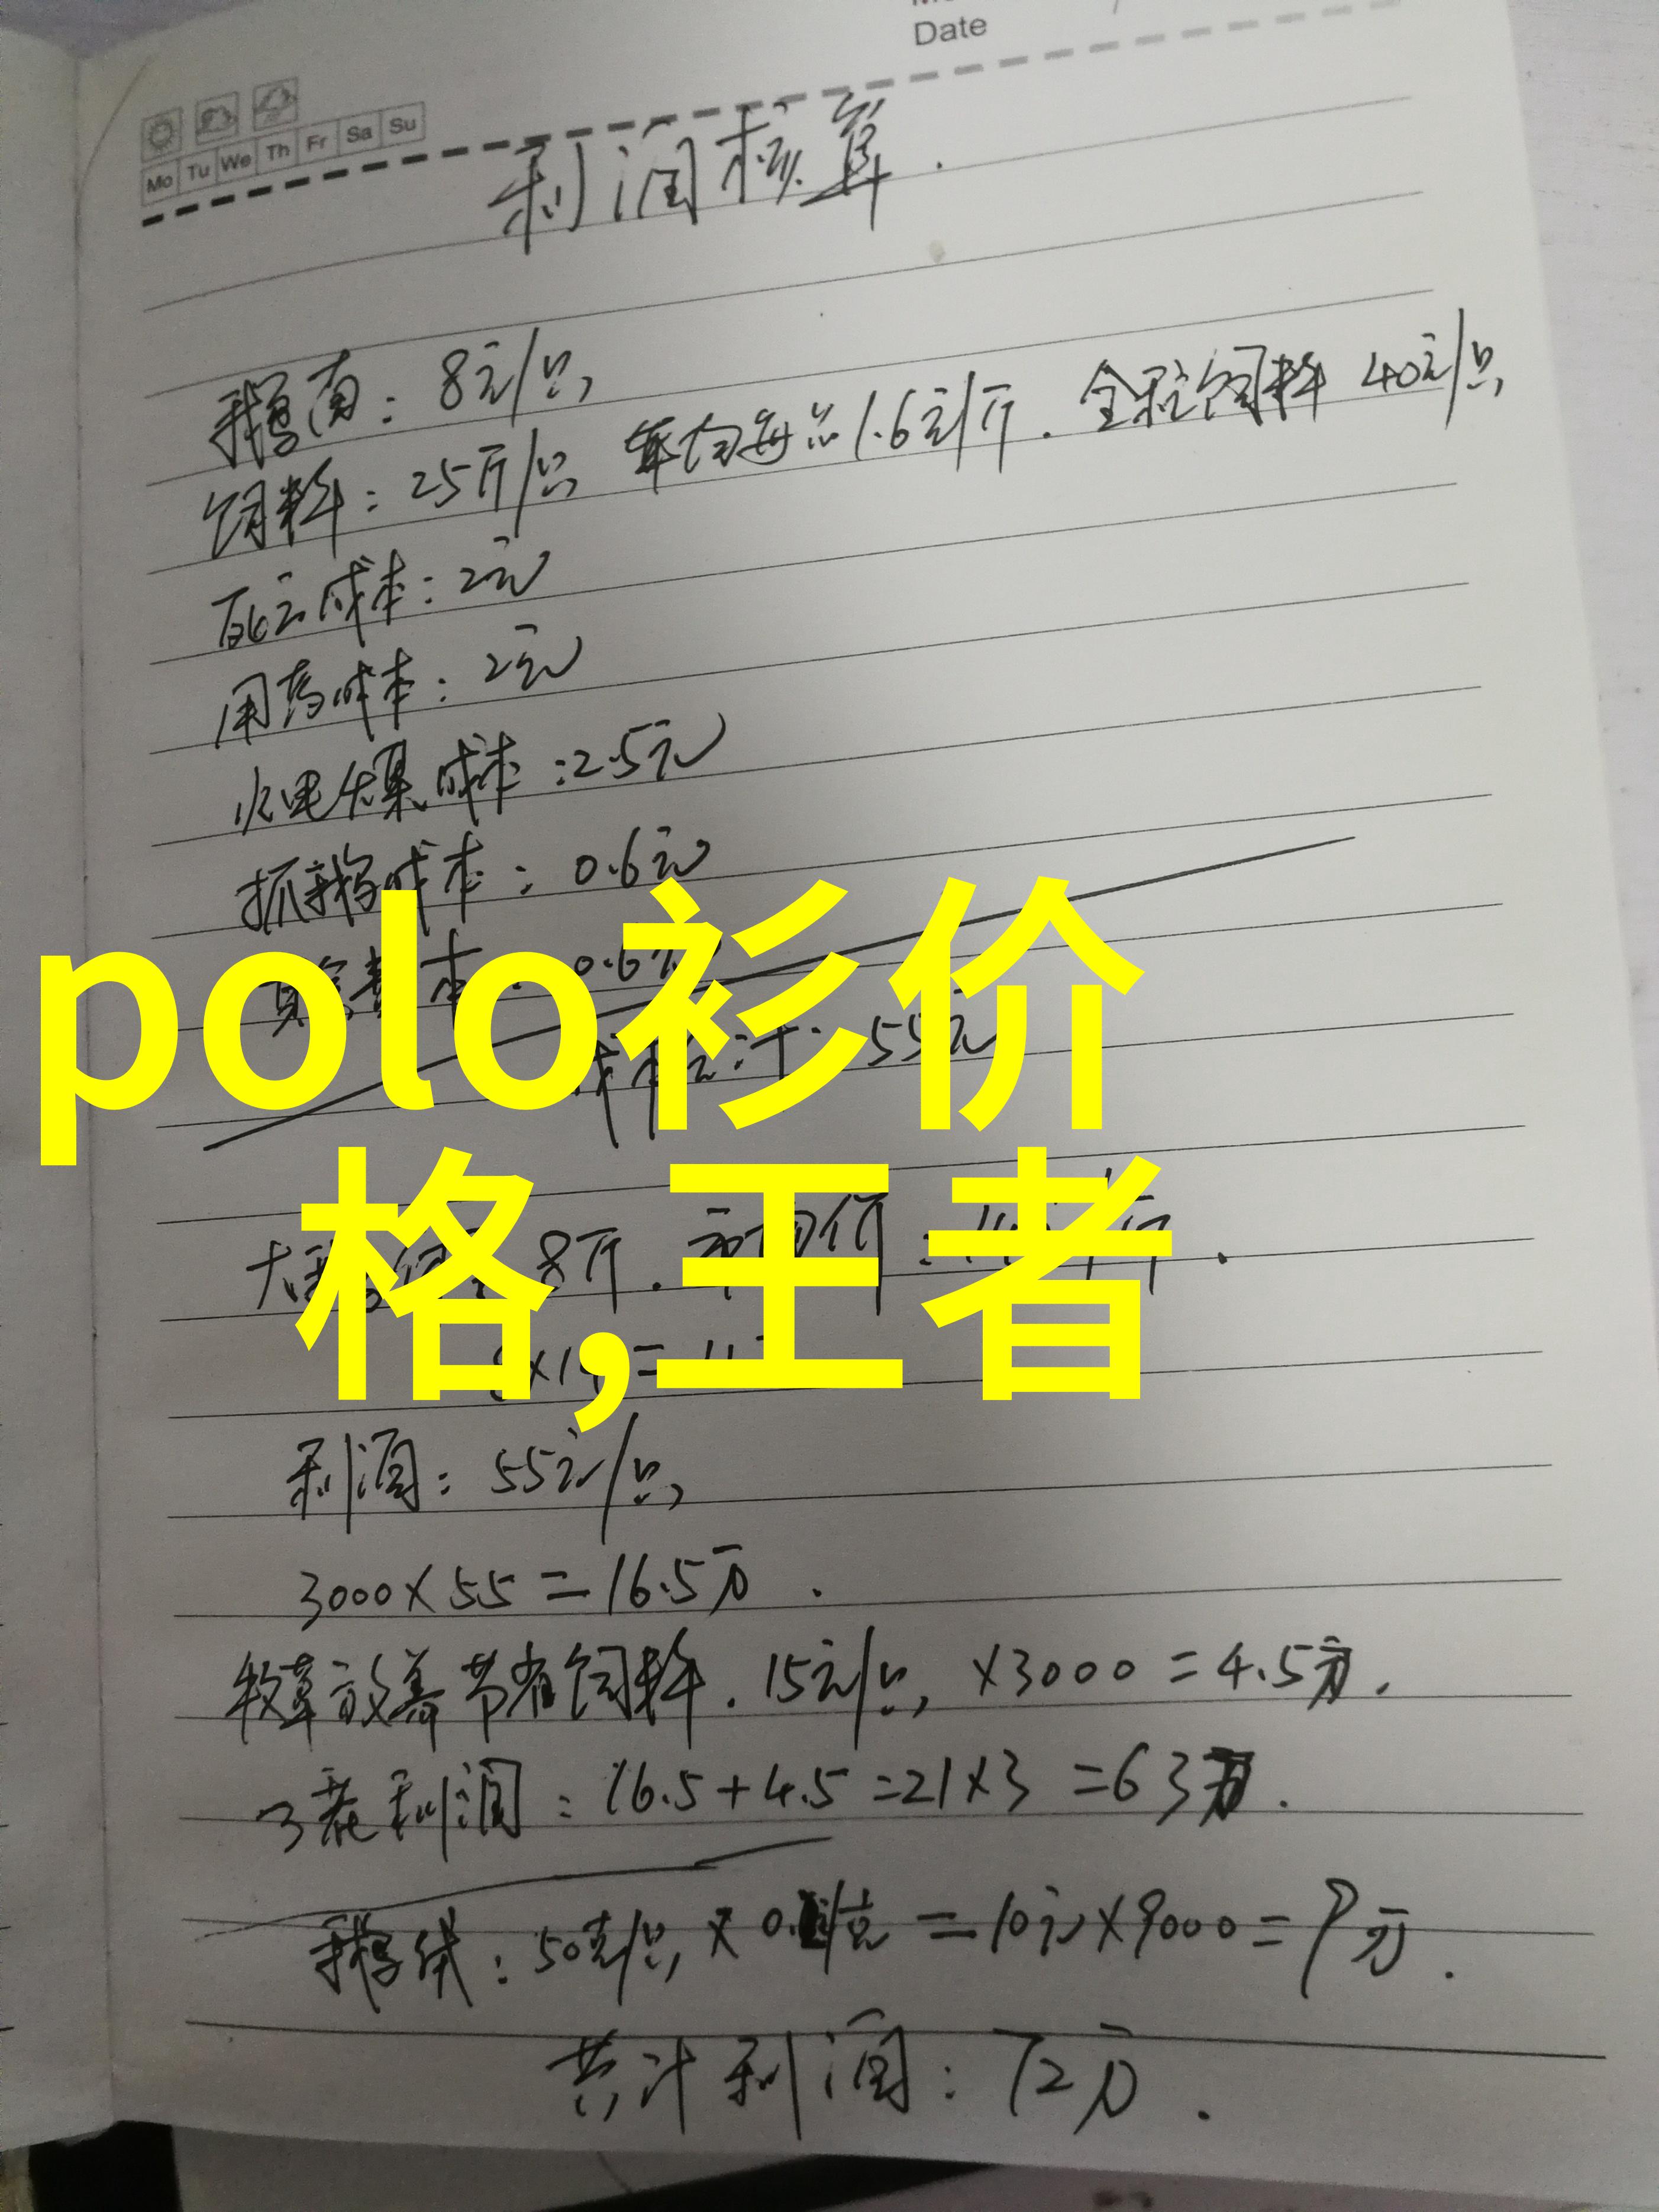 Date
Mo Tu We Th Fr Sa Su
利润核算.
鹅苗: 8元/只
饲料: 25斤/只 平均每斤1.6元/斤. 全程饲料 40元/只
死亡成本: 2元
用药成本: 2元
水电煤成本: 2.5元
抓鹅成本: 0.6元
本: 0.6元
polo衫价
55元
格,王者
8斤.
利润: 55元/只
3000×55=16.5万.
牧草放养节省饲料. 15元/只 ×3000=4.5万.
3茬利润: 16.5+4.5=21×3=63万.
鹅绒: 50克/只 × =10元×9000=9万.
共计利润: 72万.